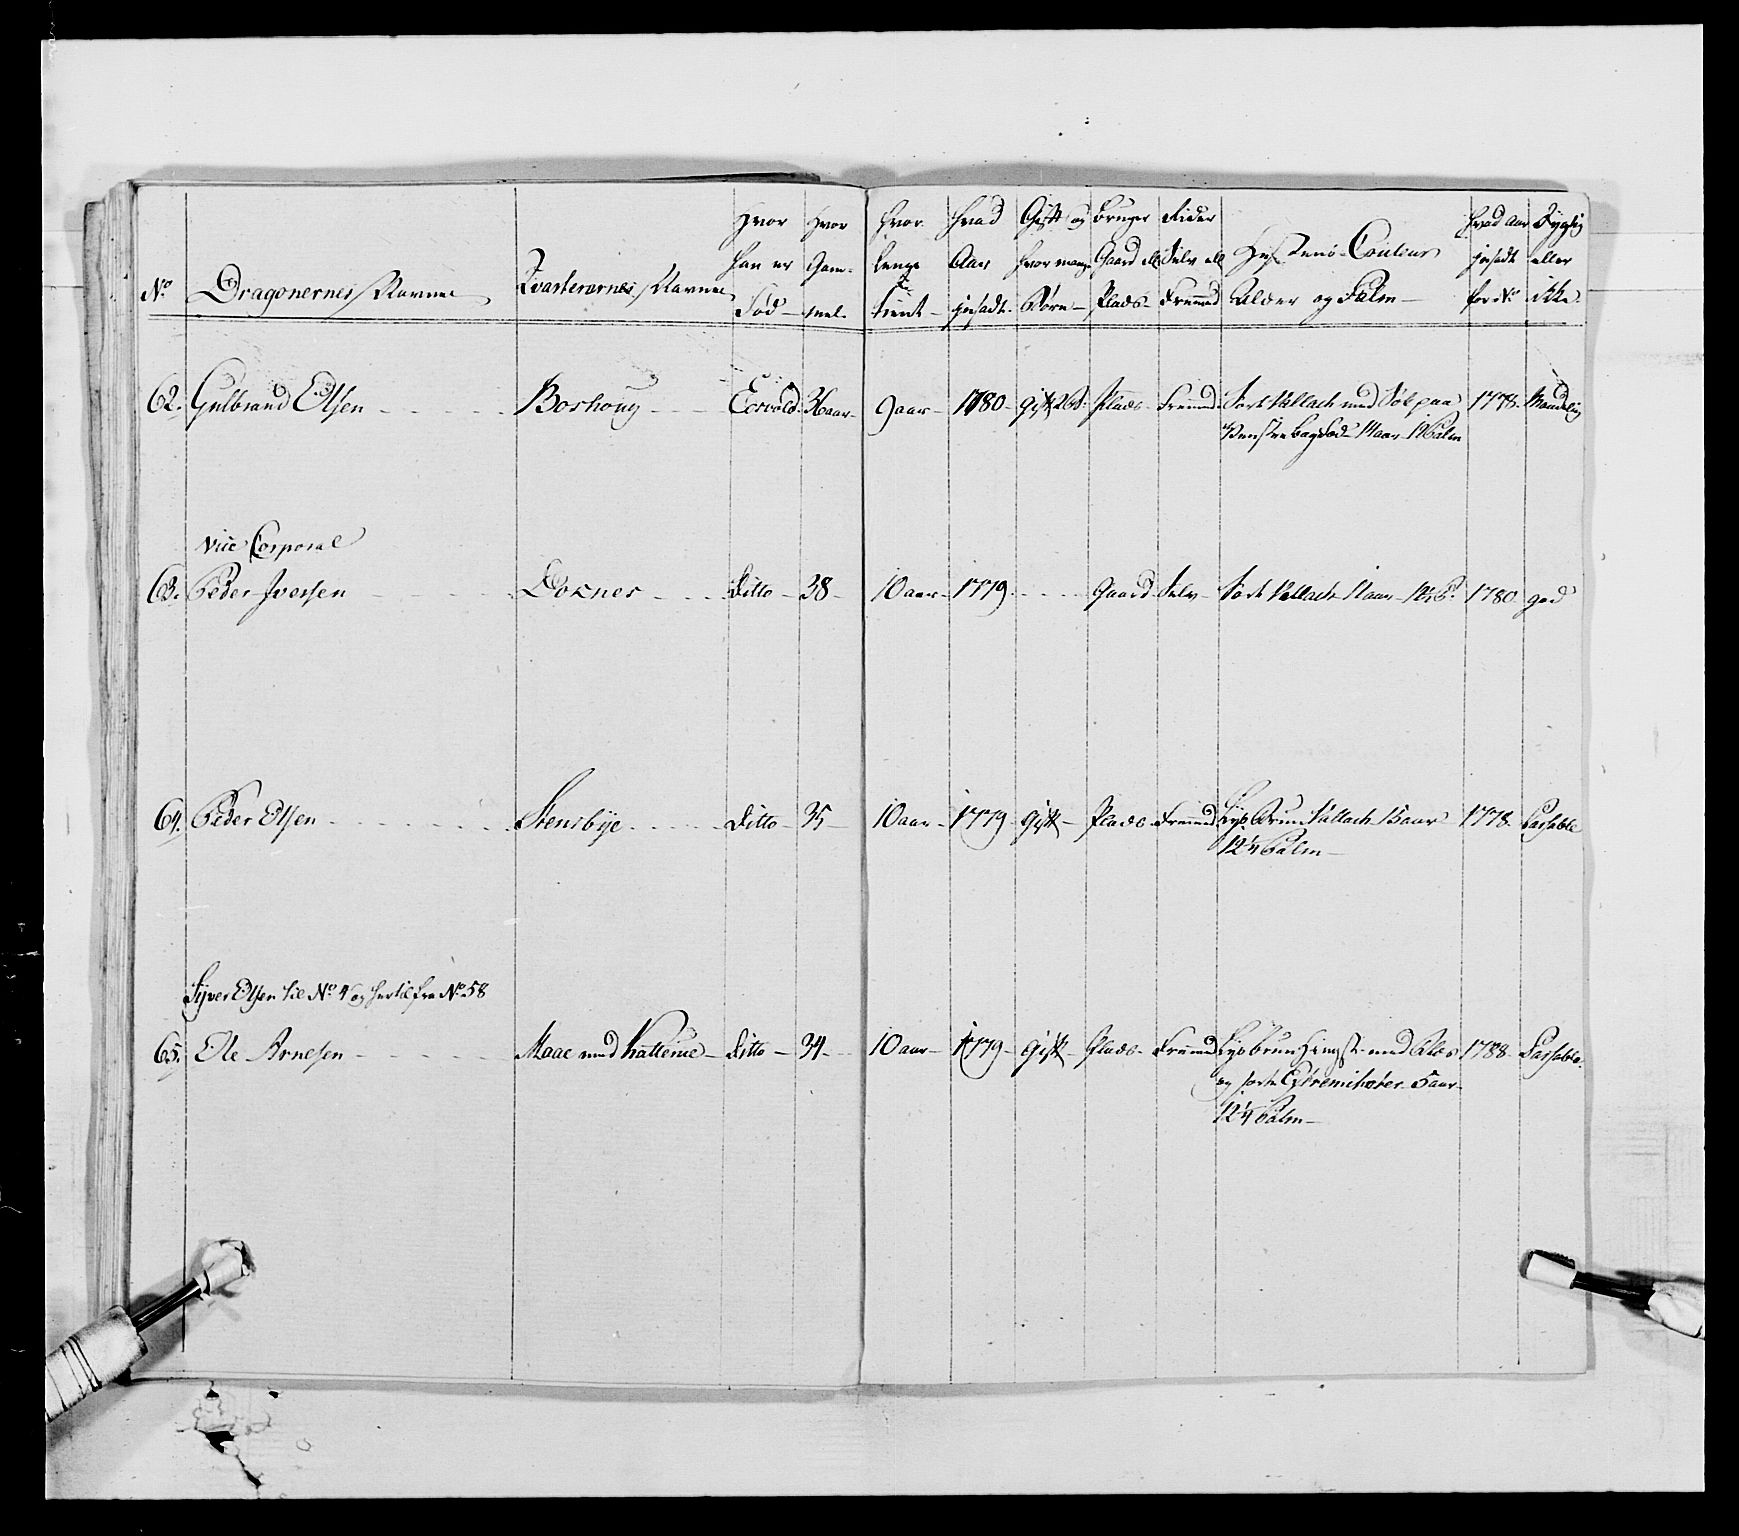 No Dragonernes Navne Qvarterernes Navne Hvor han er Fød Hvor Gam- mel Hvor Lenge tient Hvad Aar ansadt Gift og hvor mange Børn Bruger Gaard ell Plads Rider Selv ell Fremmed Hestens Couleur Alder og Palm Hvad Aar ansadt for No Dygtig eller ikke
62. Gulbrand Olsen Boshoug Eesvold 36 aar 9 aar 1780 gift 2 B. Plads Fremmed Sort Vallach med Søl paa 1778 Maadelig
Venstre bagfod 14 aar 12 Palm
Vice Corporal
63. Peder Iversen Dokner Ditto 38 10 aar 1779 Gaard Selv Sort Vallach 11 aar 1780 god
64. Peder Olsen Stensbye Ditto 35 10 aar 1779 Gift Plads Fremmed Lys Brun Vallach 15 aar 1778 Passable
12¼ Palm
Syver Olsen til No 4 og hertil fra No 58
65. Ole Arnesen Maae med Ditto 34 10 aar 1779 Gift Plads Fremmed Lys brun Hingst med Blis 1788 Passable
og sorte Extremiteter 5 aar
12¼ Palm